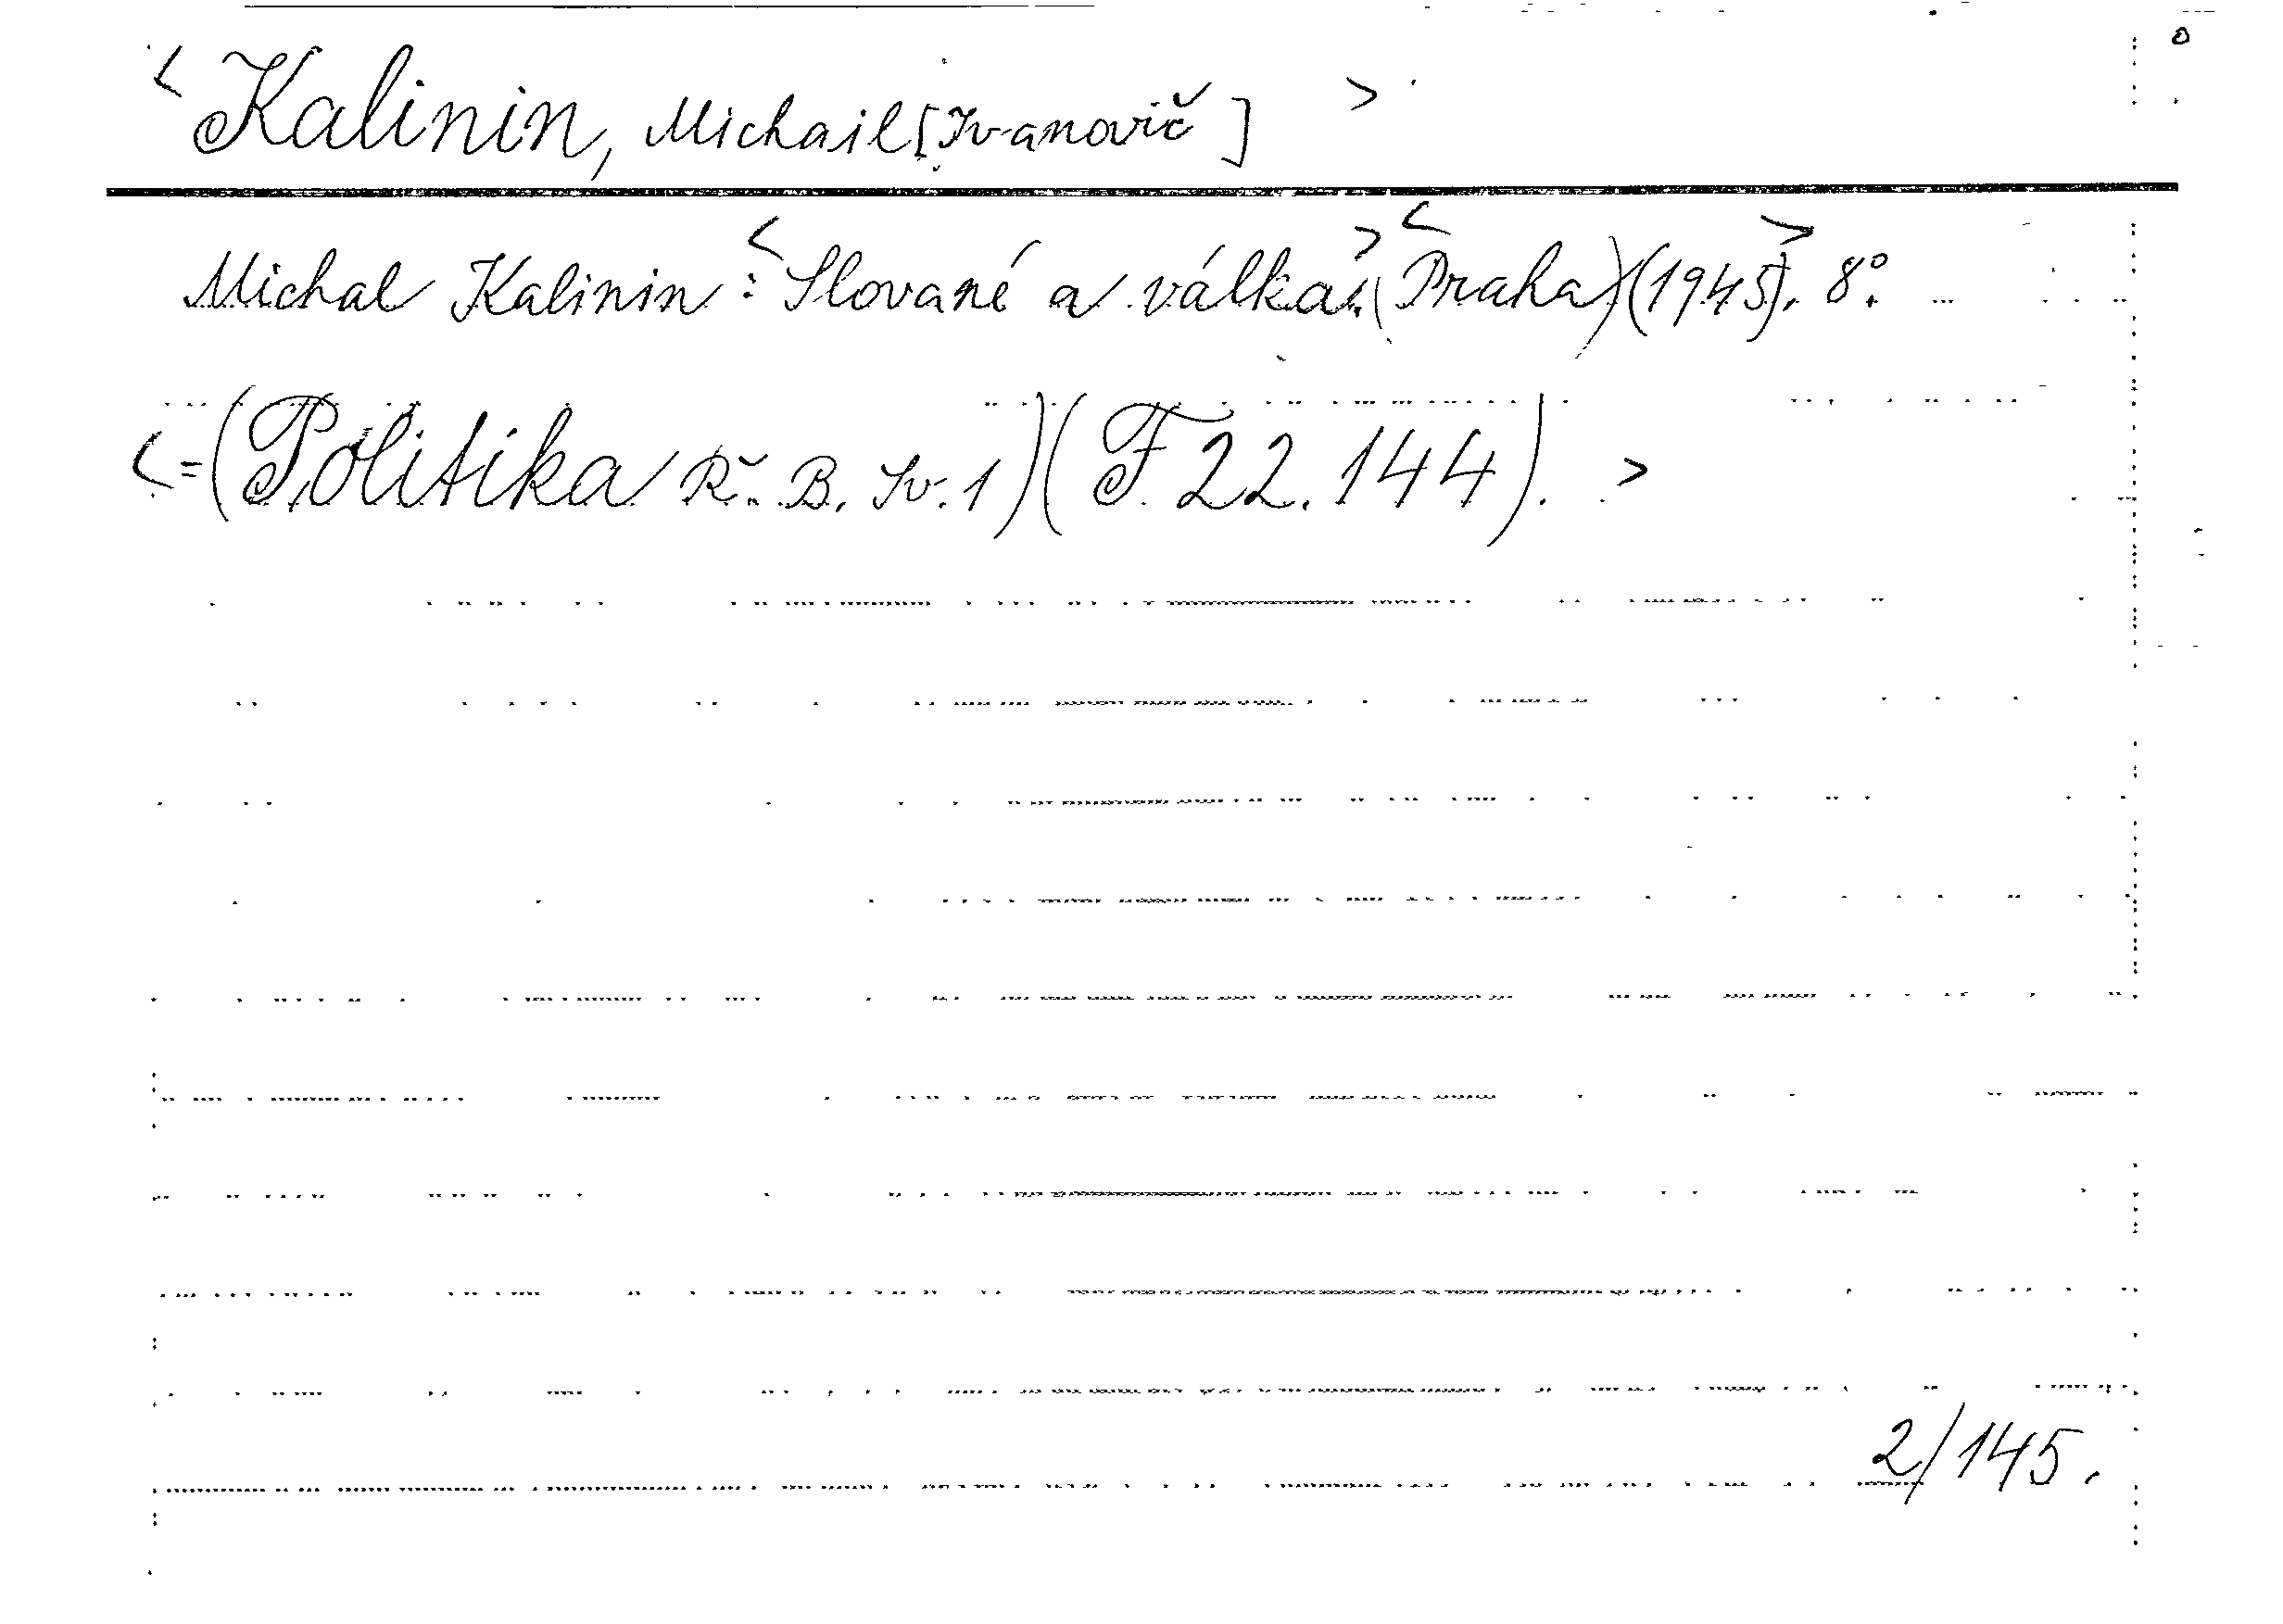 < Kalinin, Michail [Ivanovič] >
Michal Kalinin: <Slované a válka.> <(Praha)(1945).> 8°.
<=(Politika Ř. B. Sv. 1)(F 22.144). >
2/145.